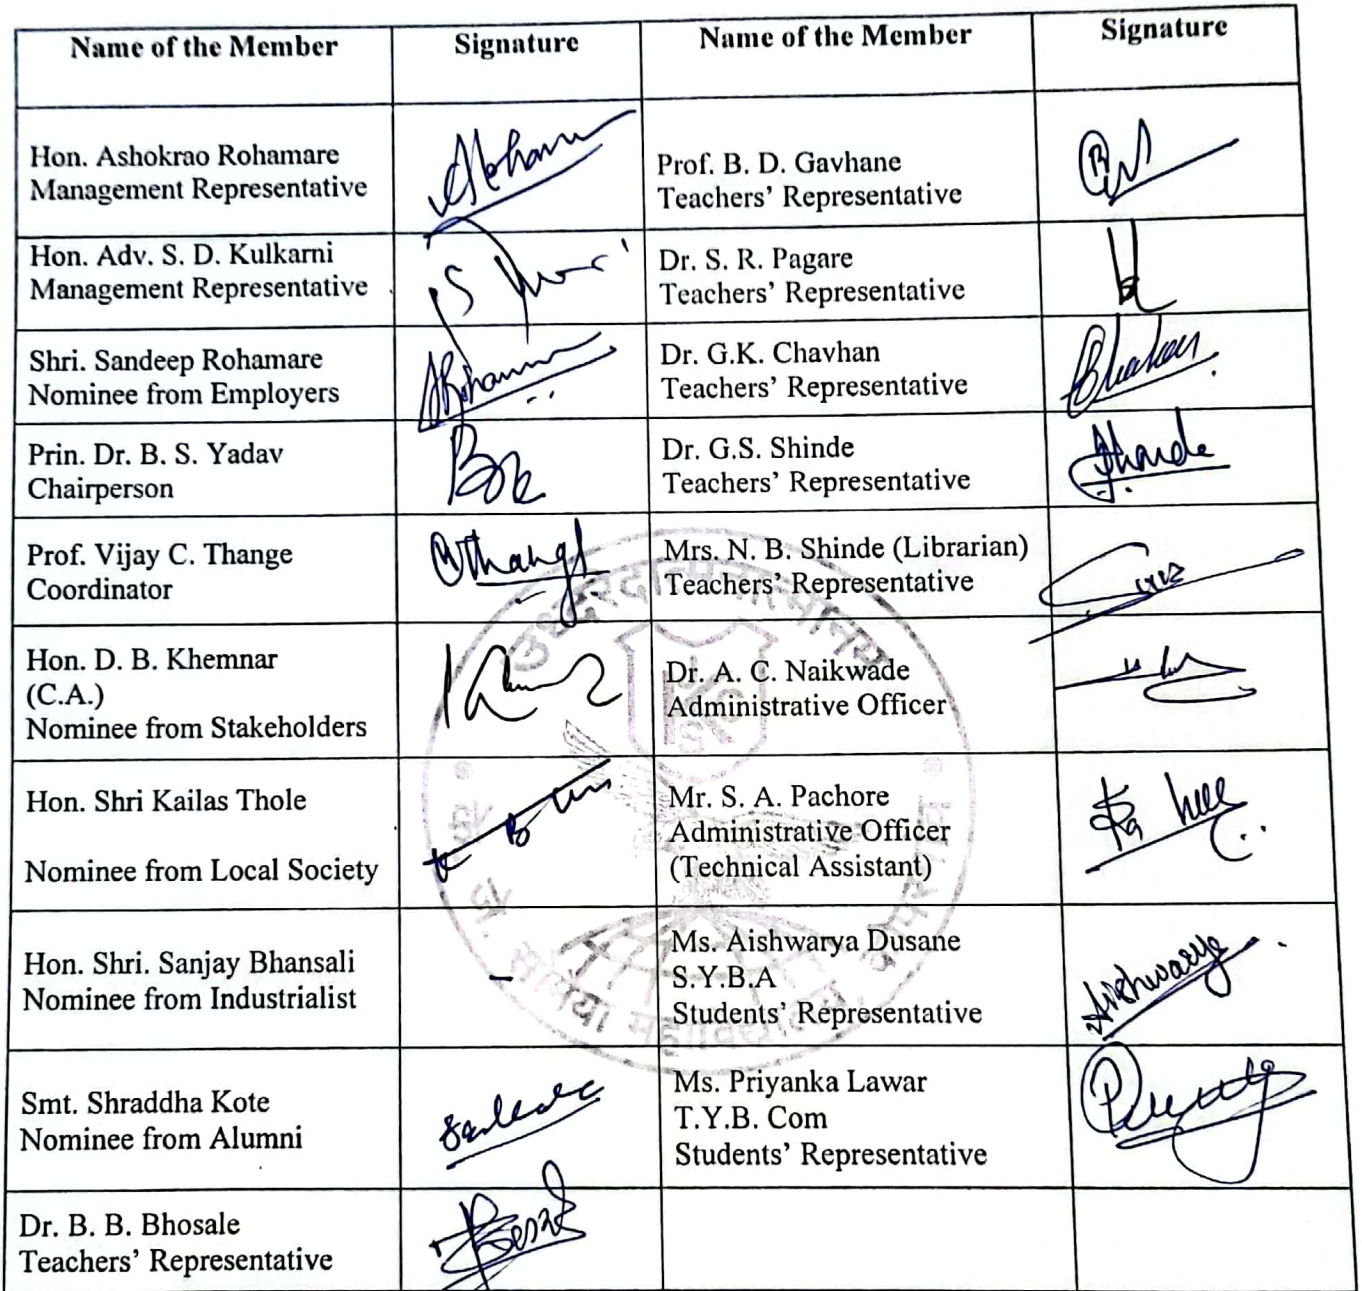 Name of the Member Signature Name of the Member Signature
Hon. Ashokrao Rohamare
Management Representative
Prof. B. D. Gavhane
Teachers' Representative
Hon. Adv. S. D. Kulkarni
Management Representative
Dr. S. R. Pagare
Teachers' Representative
Shri. Sandeep Rohamare
Nominee from Employers
Dr. G.K. Chavhan
Teachers' Representative
Prin. Dr. B. S. Yadav
Chairperson
Dr. G.S. Shinde
Teachers' Representative
Prof. Vijay C. Thange
Coordinator
Mrs. N. B. Shinde (Librarian)
Teachers' Representative
Hon. D. B. Khemnar
(C.A.)
Nominee from Stakeholders
Dr. A. C. Naikwade
Administrative Officer
Hon. Shri Kailas Thole
Nominee from Local Society
Mr. S. A. Pachore
Administrative Officer
(Technical Assistant)
Hon. Shri. Sanjay Bhansali
Nominee from Industrialist
-
Ms. Aishwarya Dusane
S.Y.B.A
Students' Representative
Aishwarya
Smt. Shraddha Kote
Nominee from Alumni
Ms. Priyanka Lawar
T.Y.B. Com
Students' Representative
Dr. B. B. Bhosale
Teachers' Representative